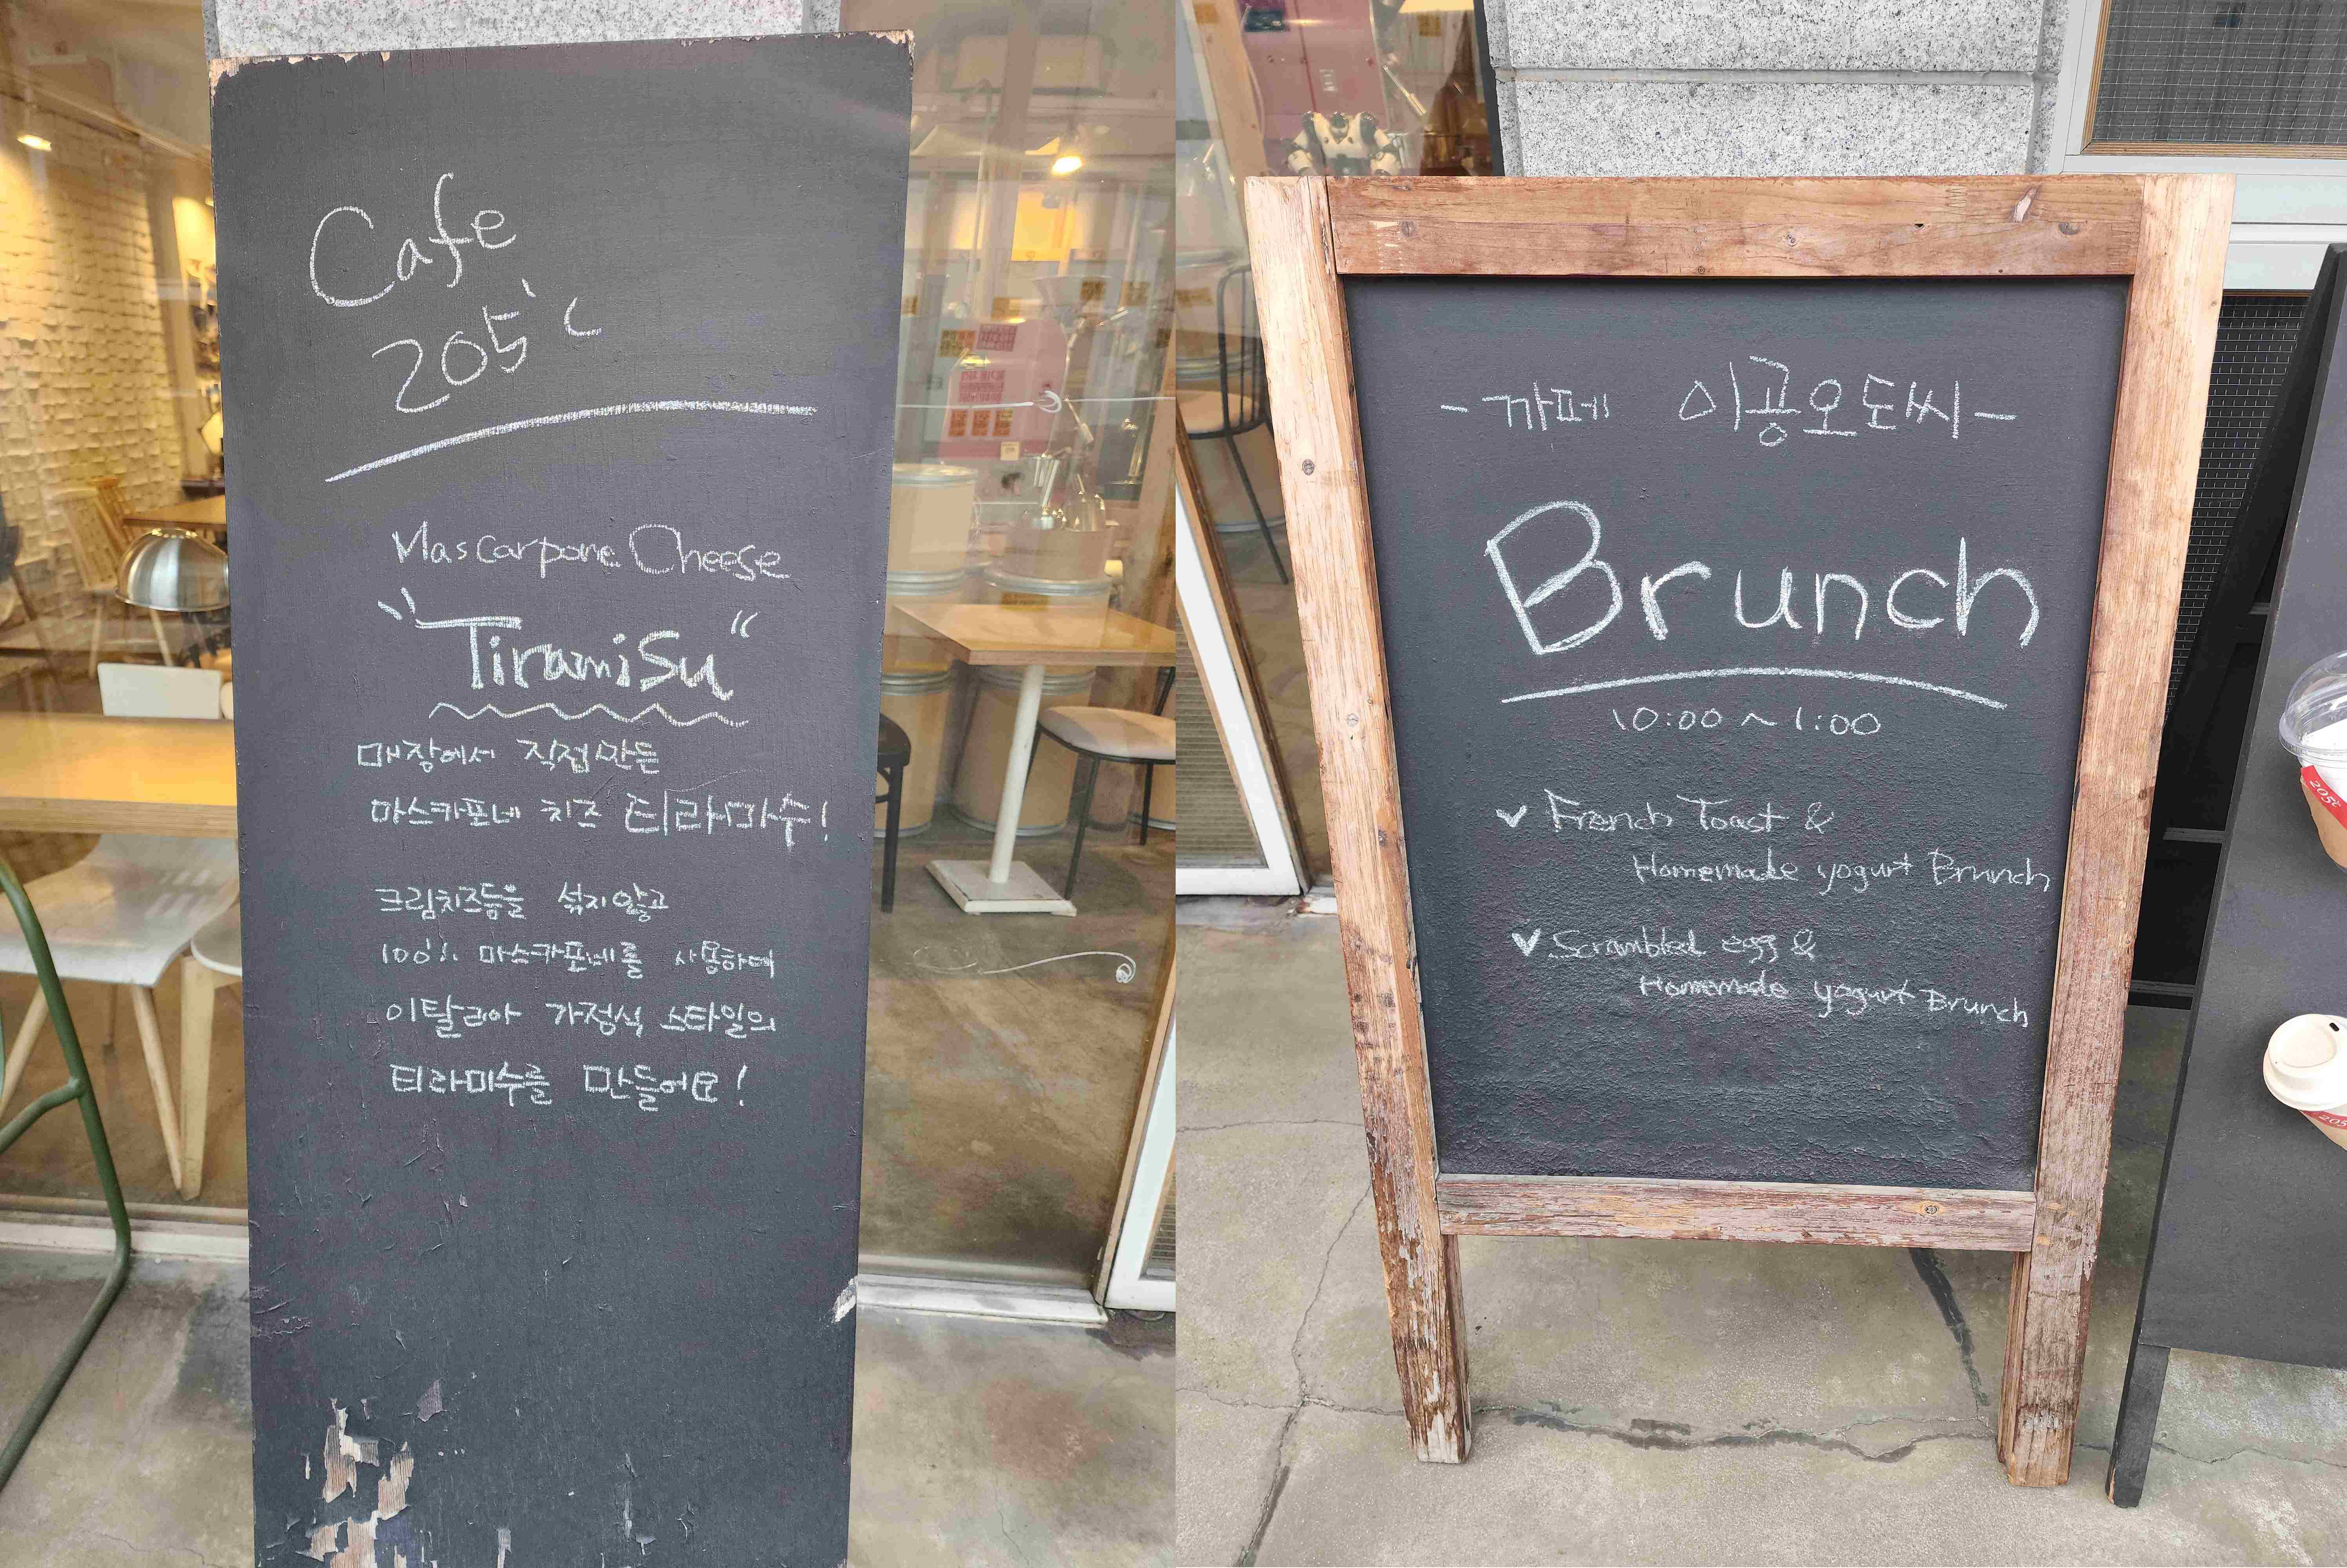 Cafe
205°C
Mascarpone Cheese
"Tiramisu"
매장에서 직접만든
마스카포네 치즈 티라미수!
크림치즈등을 섞지않고
100% 마스카포네를 사용하여
이탈리아 가정식 스타일의
티라미수를 만들어요!
-까페 이공오도씨-
Brunch
10:00~1:00
✓ French Toast &
Homemade yogurt Brunch
✓ Scrambled egg &
Homemade yogurt Brunch
205
205